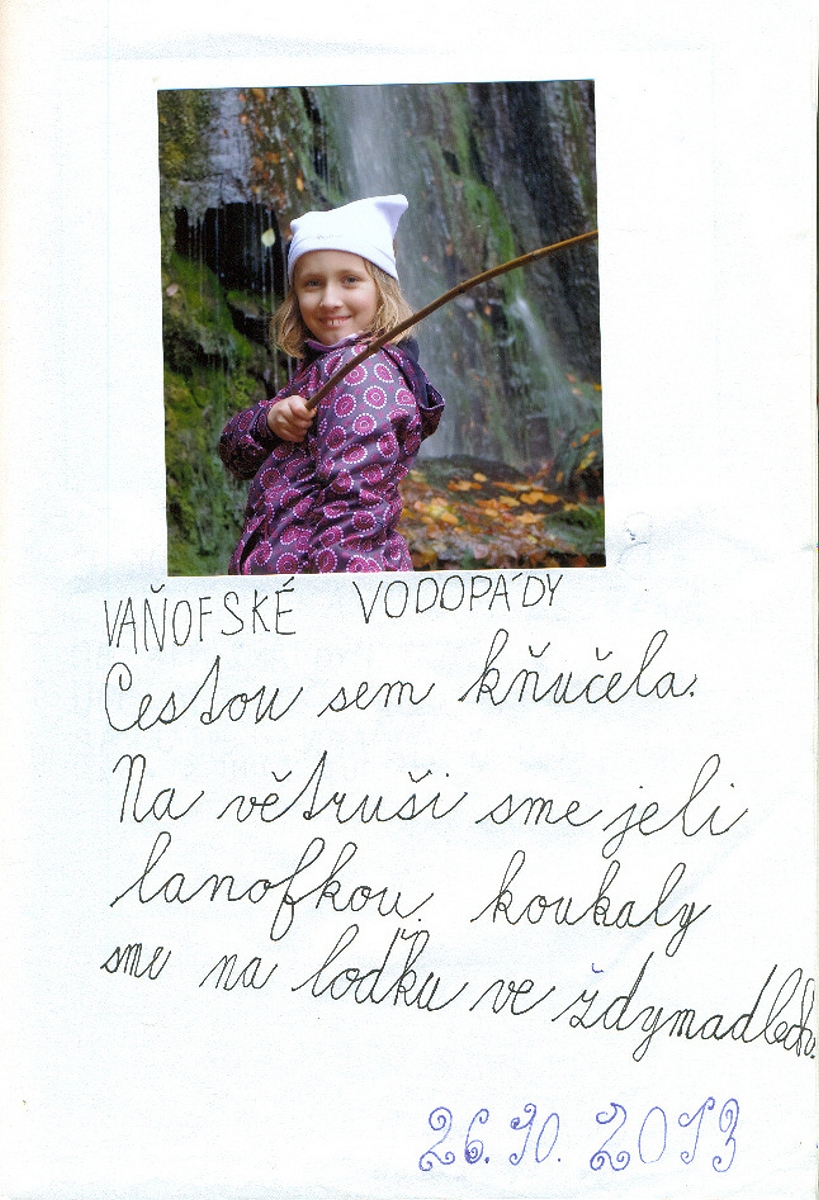 VAŇOFSKÉ VODOPÁDY
Cestou sem kňučela.
Na větruši sme jeli
lanofkou. koukaly
sme na loďku ve ždymadlech.
26.10.2013